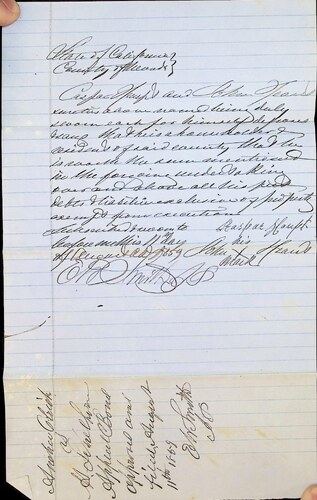 State of California }
County of Nevada }
Casper Haupt and John Heard
sureties above named being duly
sworn each for himself deposes &
says that he is a householder &
resident of said county that he
is worth the sum mentioned
in the foregoing undertaking
over and above all his just
debts & liabilities exclusive of property
exempt from execution
Subscribed & sworn to Kaspar Haupt
before me this 11th day his
of August AD 1859 John X Heard
E R Smith JP mark
vs
Appeal Bond
Approved and
filed August
11th 1859
E R Smith
JP